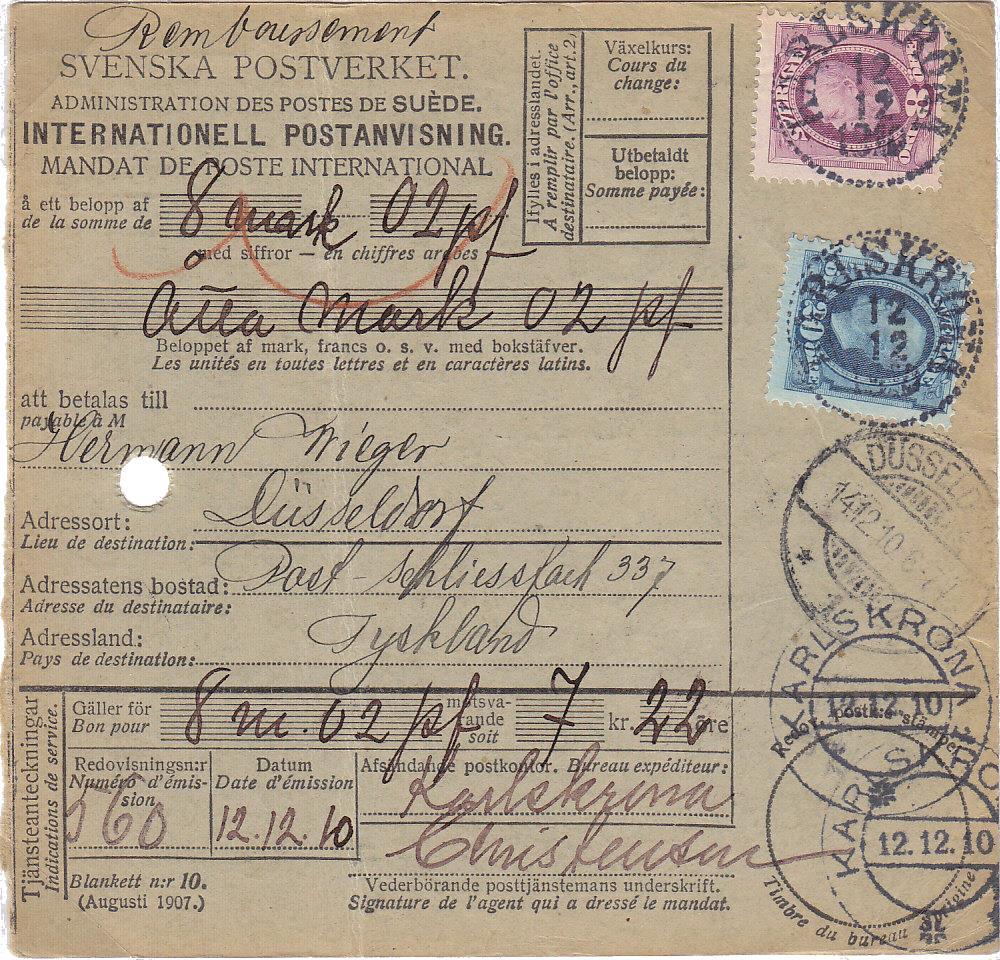 Remboursement
SVENSKA POSTVERKET.
ADMINISTRATION DES POSTES DE SUÈDE.
INTERNATIONELL POSTANVISNING.
MANDAT DE POSTE INTERNATIONAL
å ett belopp af
de la somme de
8 mark 02 pf
med siffror — en chiffres arabes
Åtta Mark 02 pf
Beloppet af mark, francs o. s. v. med bokstäfver.
Les unités en toutes lettres et en caractères latins.
Ifylles i adresslandet.
A remplir par l'office
destinataire. (Arr., art.2)
Växelkurs:
Cours du
change:
Utbetaldt
belopp:
Somme payée:
att betalas till
payable à M
Hermann Wieger
Adressort:
Lieu de destination:
Düsseldorf
Adressatens bostad:
Adresse du destinataire:
Post-schliessfach 337
Adressland:
Pays de destination:
Tyskland
Tjänsteanteckningar
Indications de service.
Gäller för
Bon pour
8 m. 02 pf
motsva-
rande
soit
7 kr. 22 öre
Redovisningsn:r
Numéro d'émis-
sion
560
Datum
Date d'émission
12.12.10
Afsändande postkontor. Bureau expéditeur:
Karlskrona
Christensen
Vederbörande posttjänstemans underskrift.
Signature de l'agent qui a dressé le mandat.
Blankett n:r 10.
(Augusti 1907.)
SVERIGE
8
KARLSKRONA
12
12
KARLSKRONA
12
12
DÜSSELD
14.12.10
KARLSKRONA
12.12.10
12.12.10
Timbre du bureau d'origine